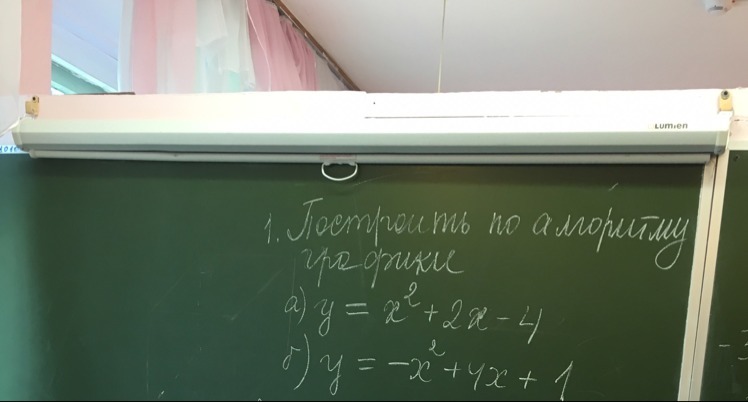 Lumien
1. Построить по алгоритму
графики
а) y = x² + 2x - 4
б) y = -x² + 4x + 1